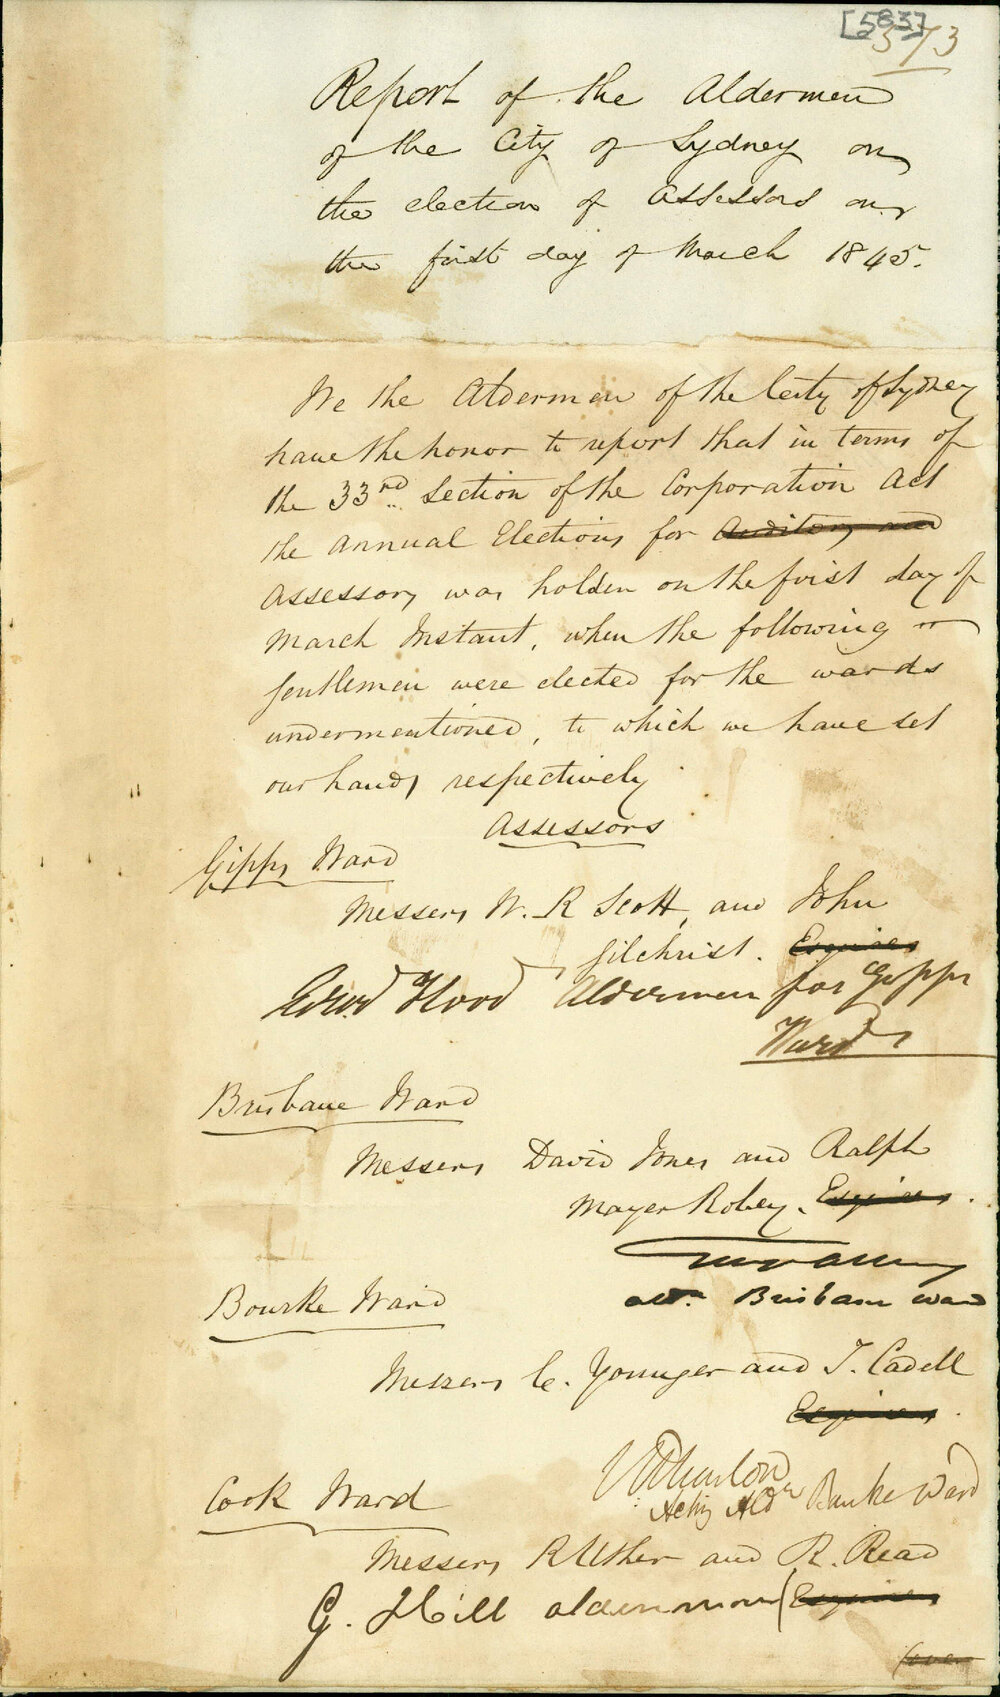 [583]
573
Report of the Aldermen
of the City of Sydney on
the election of Assessors on
the first day of March 1845.
We the Aldermen of the City of Sydney
have the honor to report that in terms of
the 33rd Section of the Corporation Act
the Annual Elections for Auditors and
Assessors was holden on the first day of
March Instant, when the following
Gentlemen were elected for the wards
undermentioned, to which we have set
our hands respectively
Assessors
Gipps Ward
Messers W. R Scott, and John
Gilchrist. Esquires
Edwd Flood Aldermen for Gipps
Ward
Brisbane Ward
Messers David Jones and Ralph
Mayer Robey. Esquires.
Brisbane Ward
Bourke Ward
Messers C. Younger and T. Cadell
Esquires.
Acting Aldn Bourke Ward
Cook Ward
Messers R Uther and R. Read
G. Hill alderman (Esquires
(over